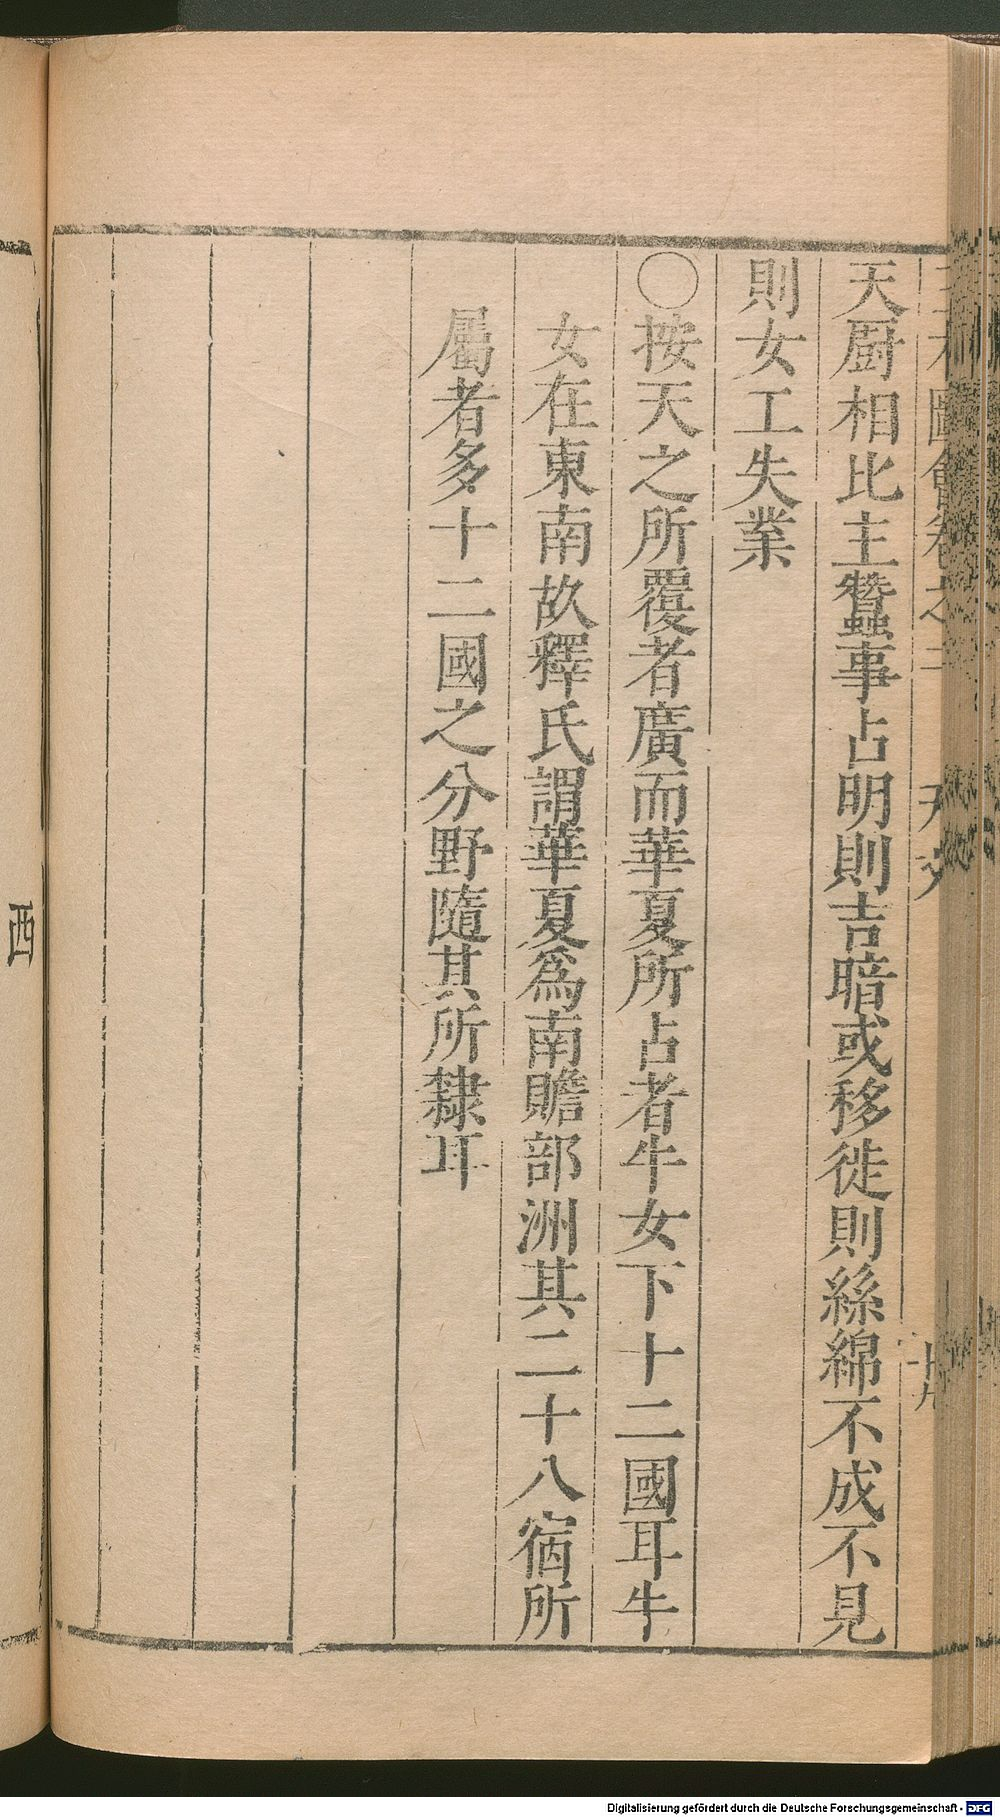 天廚相比主蠶事占明則吉暗或移徙則絲綿不成不見
則女工失業
〇按天之所覆者廣而華夏所占者牛女下十二國耳牛
女在東南故釋氏謂華夏爲南贍部洲其二十八宿所
屬者多十二國之分野隨其所隸耳
西
Digitalisierung gefördert durch die Deutsche Forschungsgemeinschaft - DFG